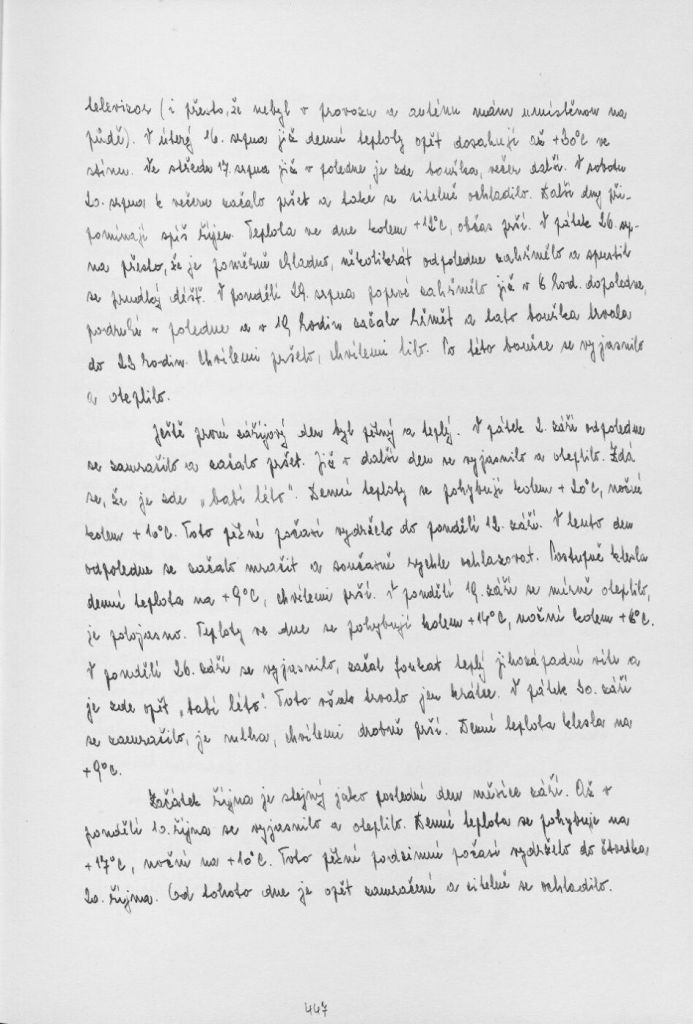 televizor (i přesto, že nebyl v provozu a anténu mám umístěnou na
půdě). V úterý 16. srpna již denní teploty opět dosahují až +30°C ve
stínu. Ve středu 17. srpna již v poledne je zde bouřka, večer další. V sobotu
20. srpna k večeru začalo pršet a také se citelně ochladilo. Další dny při-
pomínají spíš říjen. Teplota ve dne kolem +12°C, občas prší. V pátek 26. srp-
na přesto, že je poměrně chladno, několikrát odpoledne zahřmělo a spustil
se prudký déšť. V pondělí 29. srpna poprvé zahřmělo již v 6 hod. dopoledne,
podruhé v poledne a v 19 hodin začalo hřmět a tato bouřka trvala
do 23 hodin. Chvílemi pršelo, chvílemi lilo. Po této bouřce se vyjasnilo
a oteplilo.
Ještě první zářijový den byl pěkný a teplý. V pátek 2. září odpoledne
se zamračilo a začalo pršet. Již v další den se vyjasnilo a oteplilo. Zdá
se, že je zde „babí léto". Denní teploty se pohybují kolem +20°C, noční
kolem +10°C. Toto pěkné počasí vydrželo do pondělí 12. září. V tento den
odpoledne se začalo mračit a současně rychle ochlazovat. Postupně klesla
denní teplota na +9°C, chvílemi prší. V pondělí 19. září se mírně oteplilo,
je polojasno. Teploty ve dne se pohybují kolem +14°C, noční kolem +6°C.
V pondělí 26. září se vyjasnilo, začal foukat teplý jihozápadní vítr a
je zde opět „babí léto". Toto však trvalo jen krátce. V pátek 30. září
se zamračilo, je mlha, chvílemi drobně prší. Denní teplota klesla na
+9°C.
Začátek října je stejný jako poslední den měsíce září. Až v
pondělí 10. října se vyjasnilo a oteplilo. Denní teplota se pohybuje na
+17°C, noční na +10°C. Toto pěkné podzimní počasí vydrželo do čtvrtka
20. října. Od tohoto dne je opět zamračené a citelně se ochladilo.
447